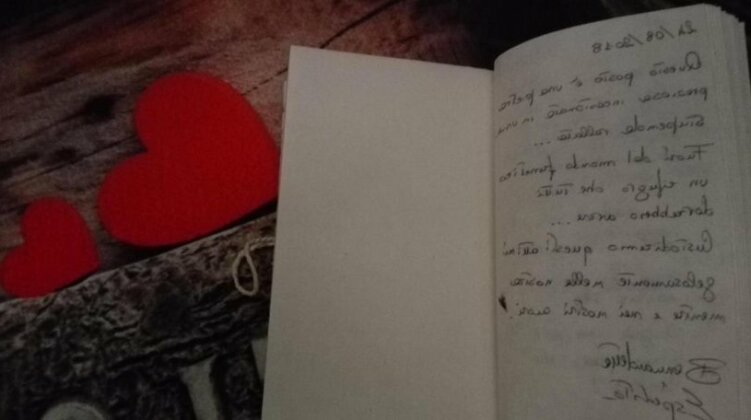 24/08/2018
Questo posto è una pietra
preziosa incastonata in una
stupenda vallata ...
Fuori dal mondo frenetico
un rifugio che tutti
dovrebbero avere ...
Custodiremo questi attimi
gelosamente nella nostra
mente e nei nostri cuori!
Bernadette
Espedito